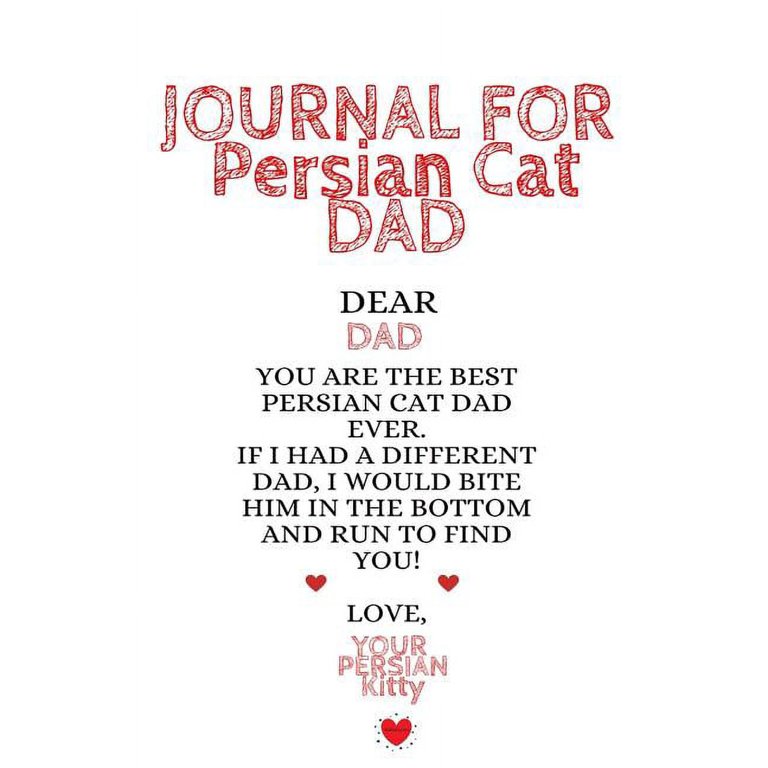 JOURNAL FOR
Persian Cat
DAD
DEAR
DAD
YOU ARE THE BEST
PERSIAN CAT DAD
EVER.
IF I HAD A DIFFERENT
DAD, I WOULD BITE
HIM IN THE BOTTOM
AND RUN TO FIND
YOU!
LOVE,
YOUR
PERSIAN
Kitty